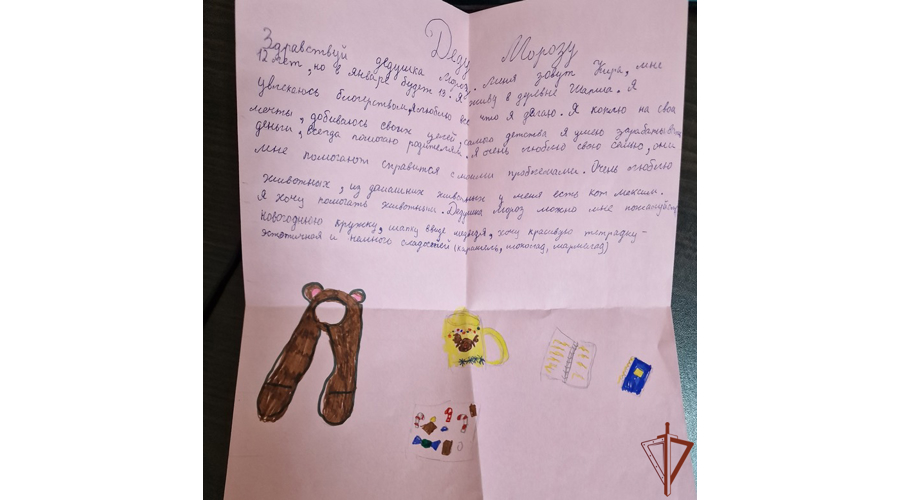 Деду Морозу
Здравствуй дедушка Мороз. Меня зовут Кира, мне
12 лет, но в январе будет 13. Я живу в дуревне Шапша. Я
увлекаюсь блогерством, я люблю все что я делаю. Я коплю на свои
мечты, добиваюсь своих целей, самого детства я умею зарабатывать
деньги, всегда помогаю родителям. Я очень люблю свою семью, они
мне помогают справится с моими проблемами. Очень люблю
животных, из домашних животных у меня есть кот максим.
Я хочу помогать животным. Дедушка Мороз можно мне пожалуйста
новогоднюю кружку, шапку ввиде медведя, хочу красивую тетрадку-
эстетичная и немного сладостей (карамель, шоколад, мармелад)